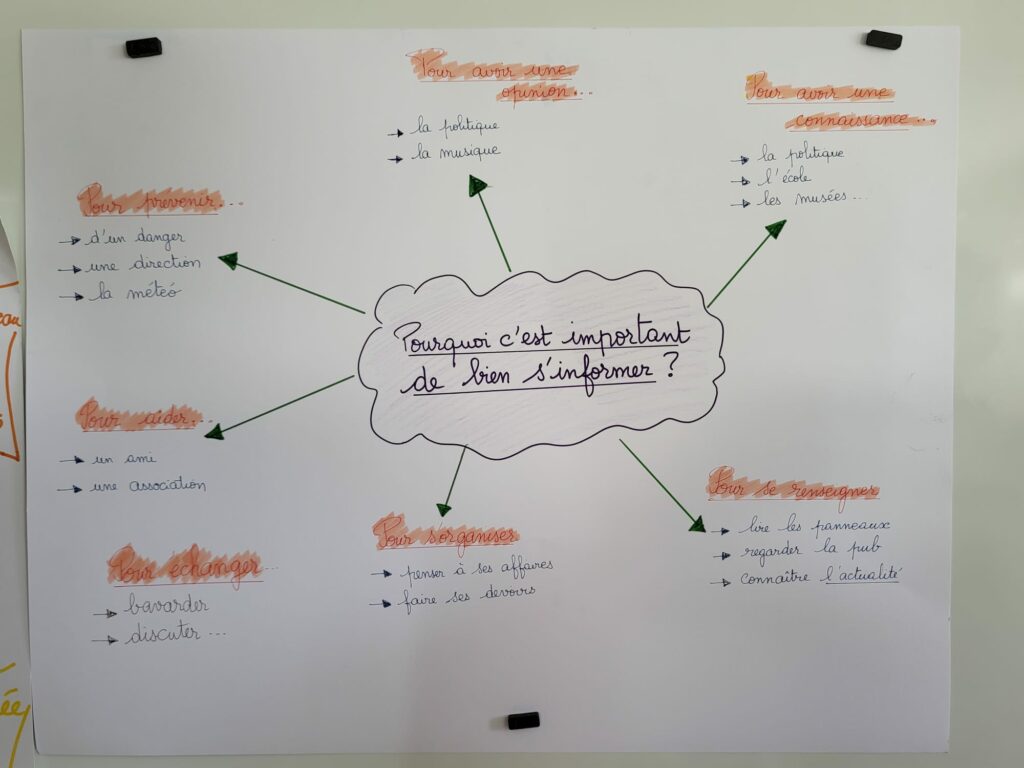 Pourquoi c'est important
de bien s'informer ?
Pour avoir une
opinion...
la politique
la musique
Pour avoir une
connaissance...
la politique
l'école
les musées...
Pour prévenir...
d'un danger
une direction
la météo
Pour aider...
un ami
une association
Pour échanger...
bavarder
discuter...
Pour s'organiser
penser à ses affaires
faire ses devoirs
Pour se renseigner
lire les panneaux
regarder la pub
connaître l'actualité